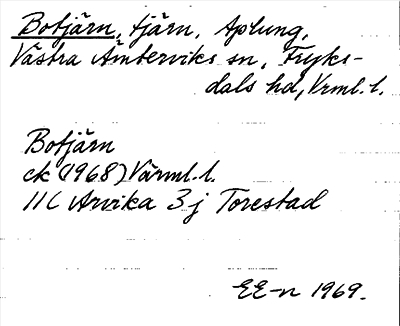 Botjärn, tjärn, Aplung,
Västra Ämterviks sn, Fryks-
dals hd, Vrml. l.
Botjärn
ek (1968) Värml. l.
11C Arvika 3j Torestad
EE-n 1969.